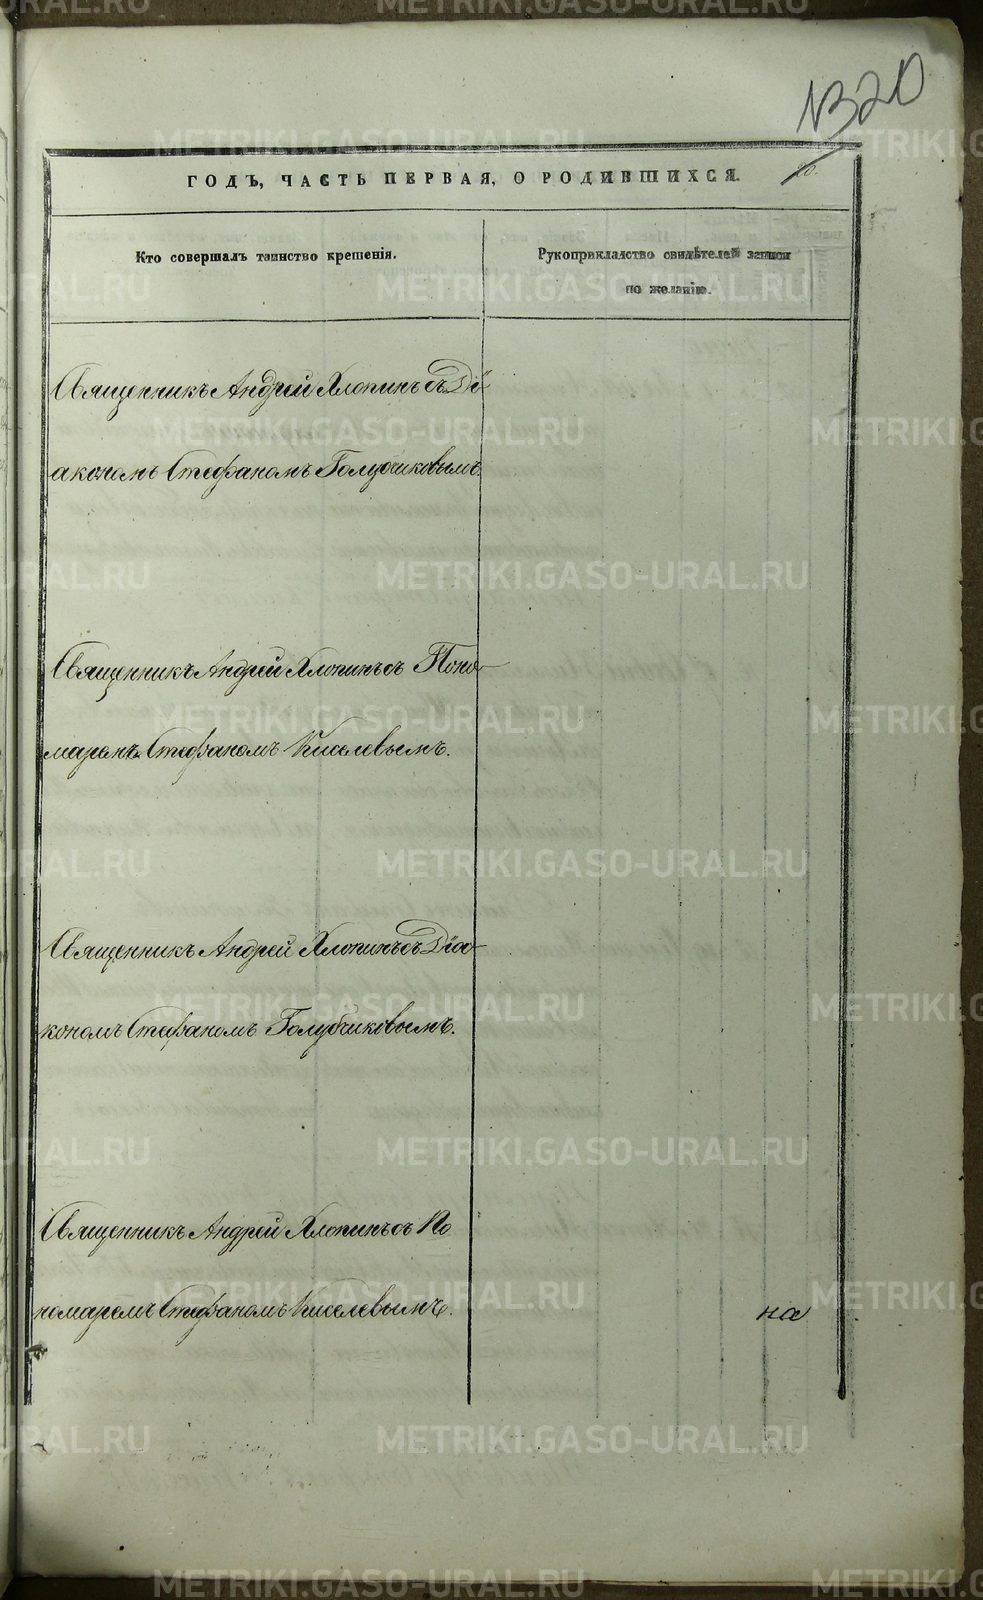 1320
20.
ГОДЪ, ЧАСТЬ ПЕРВАЯ, О РОДИВШИХСЯ.
Кто совершалъ таинство крещенія.
Рукоприкладство свидѣтелей записи
по желанію.
Священникъ Андрей Хлопинъ съ Ді-
акономъ Стефаномъ Голубчиковымъ
Священникъ Андрей Хлопинъ съ Поно-
маремъ Стефаномъ Киселевымъ.
Священникъ Андрей Хлопинъ съ Діа-
кономъ Стефаномъ Голубчиковымъ.
Священникъ Андрей Хлопинъ съ По
номаремъ Стефаномъ Киселевымъ.
на
METRIKI.GASO-URAL.RU